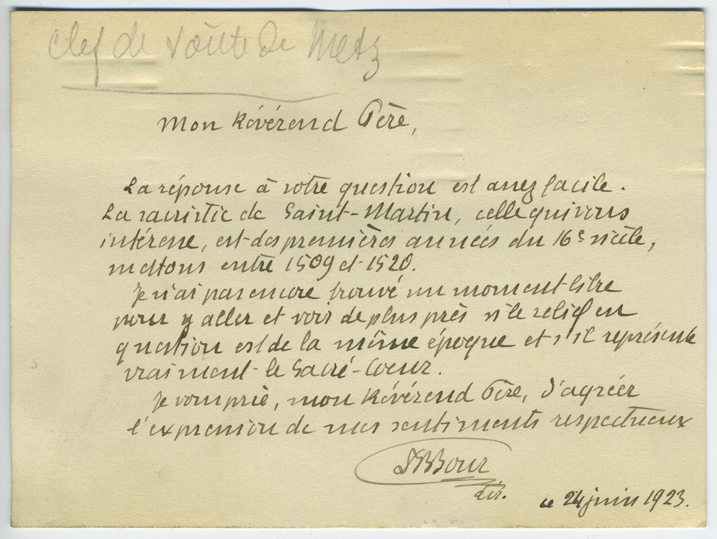 Clef de voûte de Metz
Mon Révérend Père,
La réponse à votre question est assez facile.
La sacristie de Saint-Martin, celle qui vous
intéresse, est des premières années du 16e siècle,
mettons entre 1509 et 1520.
Je n'ai pas encore trouvé un moment libre
pour y aller et voir de plus près si le relief en
question est de la même époque et s'il représente
vraiment le Sacré-Coeur.
Je vous prie, mon Révérend Père, d'agréer
l'expression de mes sentiments respectueux
Bour
dir.
ce 24 juin 1923.